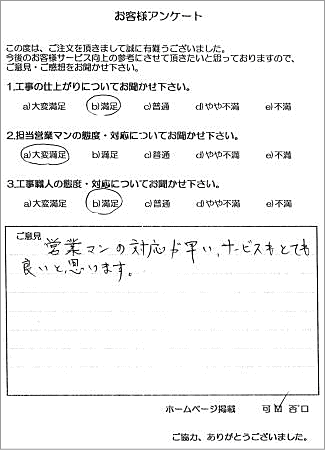 お客様アンケート
この度は、ご注文を頂きまして誠に有難うございました。
今後のお客様サービス向上の参考にさせて頂きたいと思っておりますので、
ご意見・ご感想をお聞かせ下さい。
1.工事の仕上がりについてお聞かせ下さい。
a)大変満足 b)満足 c)普通 d)やや不満 e)不満
2.担当営業マンの態度・対応についてお聞かせ下さい。
a)大変満足 b)満足 c)普通 d)やや不満 e)不満
3.工事職人の態度・対応についてお聞かせ下さい。
a)大変満足 b)満足 c)普通 d)やや不満 e)不満
ご意見
営業マンの対応が早い、サービスもとても
良いと思います。
ホームページ掲載 可 否
ご協力、ありがとうございました。